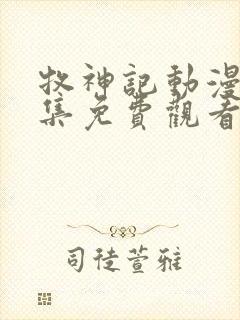 牧神記動漫
集免費觀看
司徒萱雅